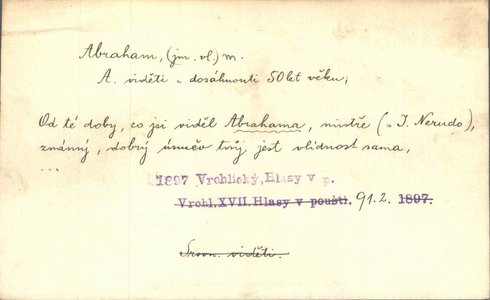 Abraham, (jm. vl.) m.
A. viděti = dosáhnouti 50 let věku;
Od té doby, co jsi viděl Abrahama, mistře (= J. Nerudo),
známý, dobrý úsměv tvůj jest vlídnost sama,
...
1897 Vrchlický, Hlasy v p.
Vrchl. XVII. Hlasy v poušti. 91.2. 1897.
Srovn. viděti.